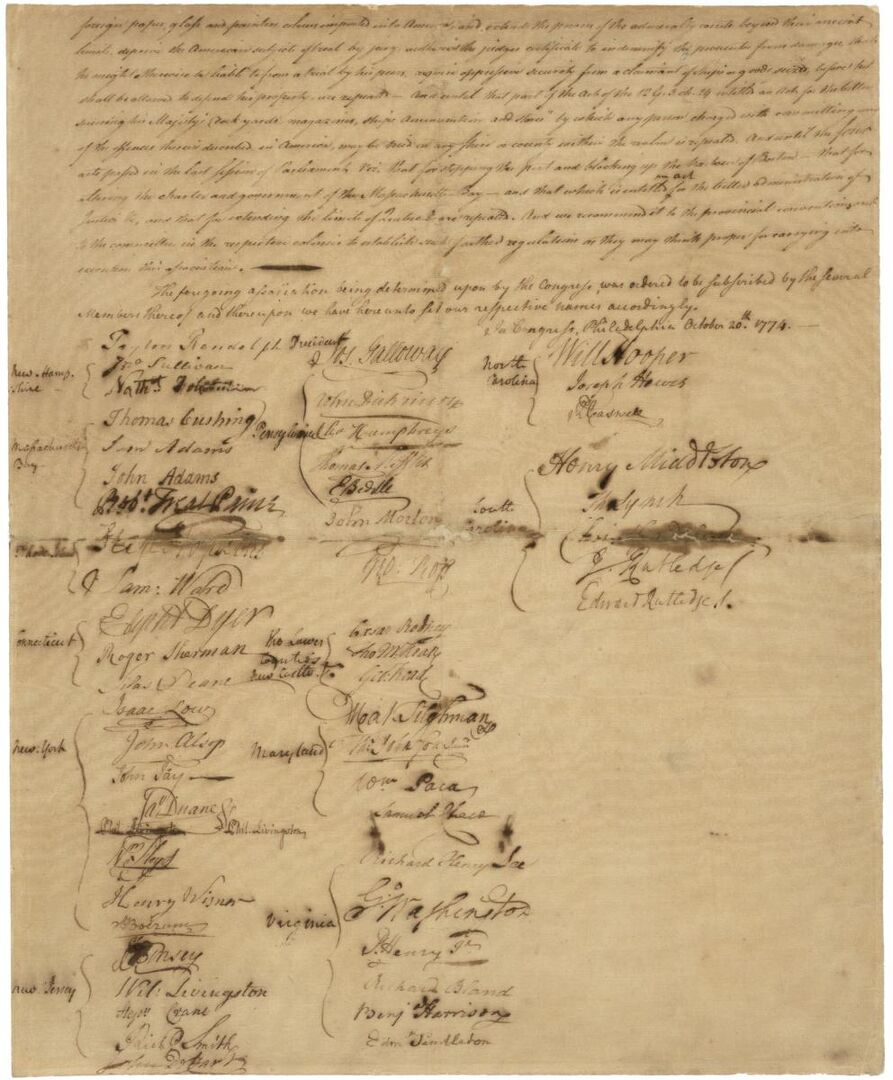 foreign paper, glass and painters colours imported into America, and extends the powers of the admiralty courts beyond their ancient
limits, deprive the American subject of trial by jury, authorize the judges certificate to indemnify the prosecutor from damages, that
he might otherwise be liable to from a trial by his peers, require oppressive security from a claimant of ships or goods seized, before he
shall be allowed to defend his property, are repealed — And until that part of the Act of the 12 G. 3. ch. 24 entitled an Act for the better
securing his Majesty's dock yards magazines, ships Ammunition and stores by which any person charged with committing any
of the offences therein described in America, may be tried in any shire or county within the realm is repealed. And until the four
acts passed in the last session of Parliament, viz. that for stopping the port and blocking up the harbour of Boston — that for
altering the charter and government of the Massachusetts Bay — and that which is entitled an act for the better administration of
Justice &c, and that for extending the limits of Quebec &c are repealed. And we recommend it to the provincial conventions, and
to the committees in the respective colonies to establish such farther regulations as they may think proper for carrying into
execution this association.
The foregoing association being determined upon by the Congress, was ordered to be subscribed by the several
Members thereof and thereupon we have hereunto set our respective names accordingly.
In Congress, Philadelphia October 20th. 1774.
Peyton Randolph President
New Hampshire
Jno Sullivan
Nathl
Massachusetts Bay
Thomas Cushing
Sam Adams
John Adams
Robt. Treat Paine
Rhode Island
Sam: Ward
Connecticut
Elipht Dyer
Roger Sherman
Silas Deane
New-York
Isaac Low
John Alsop
John Jay
Jas Duane
Phil. Livingston
Phil. Livingston
Wm Floyd
Henry Wisner
S: Boerum
New Jersey
J Kinsey
Wil: Livingston
Stepn Crane
Richd Smith
John De Hart
Pensylvania
Jos. Galloway
John Dickinson
Chs Humphreys
Thomas Mifflin
E Biddle
John Morton
Geo: Ross
The Lower Counties New Castle &c
Cæsar Rodney
Tho M:Kean
Geo Read
Maryland
Mat Tilghman
Ths Johnson Junr
Wm Paca
Samuel Chase
Virginia
Richard Henry Lee
Go Washington
P. Henry Jr
Richard Bland
Benja Harrison
Edmd Pendleton
North Carolina
Will Hooper
Joseph Hewes
Rd Caswell
South Carolina
Henry Middleton
Tho Lynch
J. Rutledge
Edward Rutledge